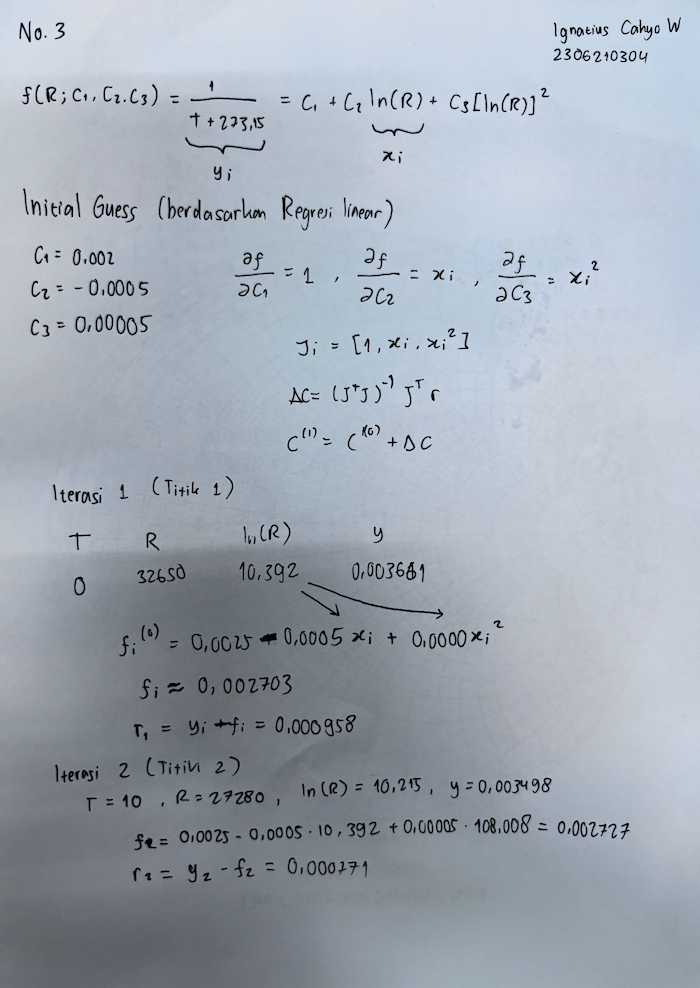 No. 3
Ignatius Cahyo W
2306210304
f(R; C₁, C₂. C₃) = 1 / (T + 273,15) = C₁ + C₂ ln(R) + C₃[ln(R)]²
yi
xi
Initial Guess (berdasarkan Regresi linear)
C₁ = 0.002
C₂ = - 0,0005
C₃ = 0,00005
∂f/∂C₁ = 1 , ∂f/∂C₂ = xi , ∂f/∂C₃ = xi²
Ji = [1, xi, xi²]
ΔC = (JᵀJ)⁻¹ Jᵀ r
C⁽¹⁾ = C⁽⁰⁾ + ΔC
Iterasi 1 (Titik 1)
T R ln(R) y
0 32650 10,392 0,003661
fi⁽⁰⁾ = 0,0025 - 0,0005 xi + 0,0000 xi²
fi ≈ 0,002703
r₁ = yi - fi = 0,000958
Iterasi 2 (Titik 2)
T = 10 , R = 27280 , ln(R) = 10,215 , y = 0,003498
f₂ = 0,0025 - 0,0005 · 10,392 + 0,00005 · 108,008 = 0,002727
r₂ = y₂ - f₂ = 0,000771